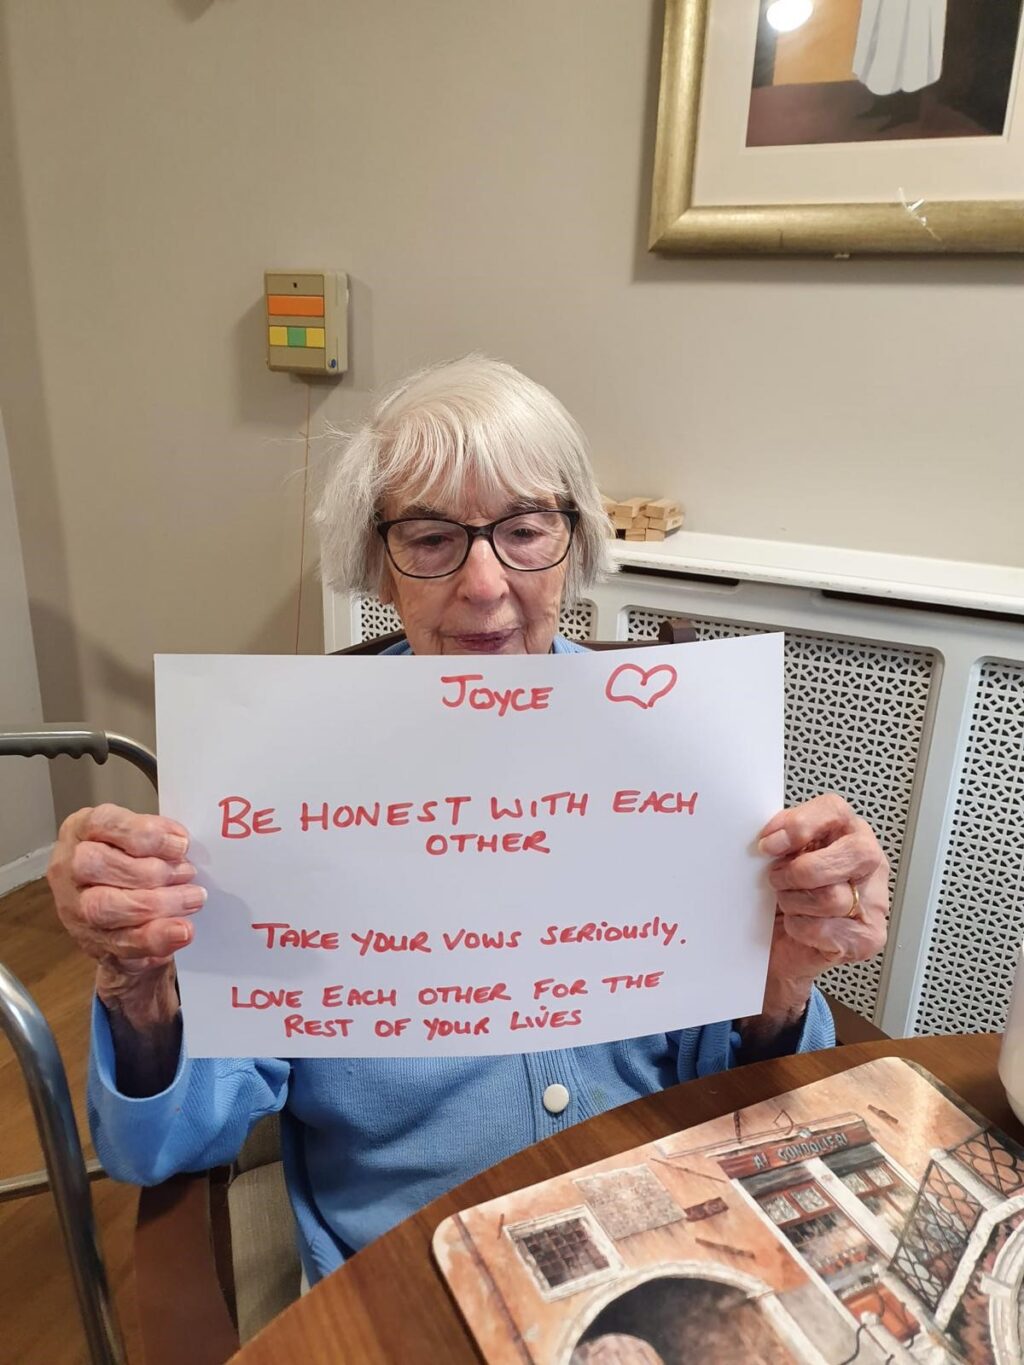 Joyce
BE HONEST WITH EACH
OTHER
TAKE YOUR VOWS SERIOUSLY.
LOVE EACH OTHER FOR THE
REST OF YOUR LIVES
AI GONDOLIERI